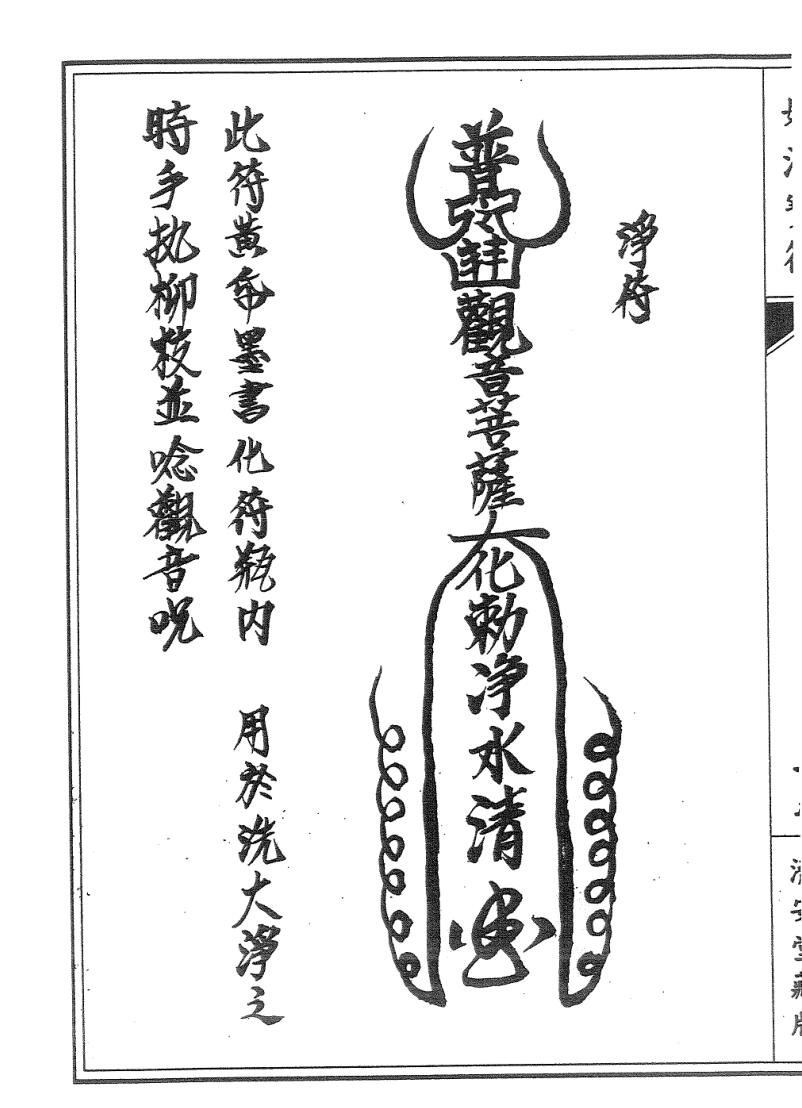 淨符
普
觀音菩薩化勅淨水清
此符黃紙墨書化符瓶内　用於洗大淨之
時手執柳枝並唸觀音呪